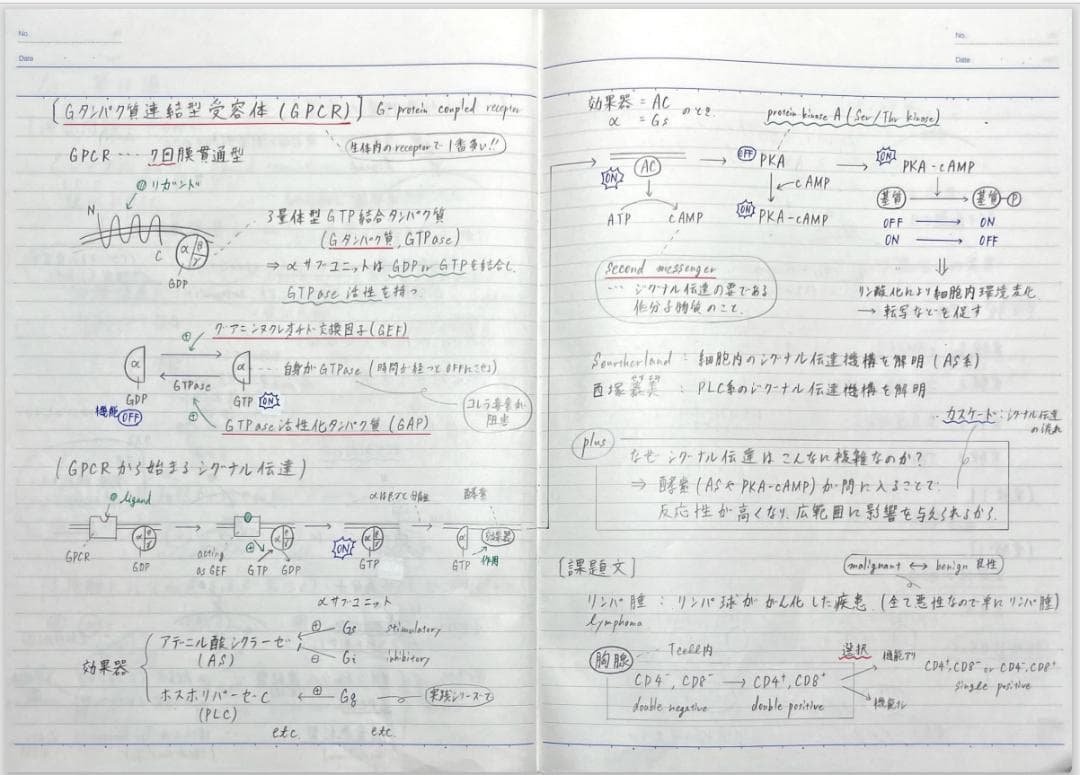 No.
Date
[Gタンパク質連結型受容体(GPCR)] G-protein coupled receptor
生体内のreceptorで1番多い!!
GPCR … 7回膜貫通型
リガンド
N
C
α β γ
GDP
3量体型GTP結合タンパク質
(Gタンパク質, GTPase)
⇒ αサブユニットはGDP or GTPを結合し、
GTPase活性を持つ
グアニンヌクレオチド交換因子(GEF)
⊕
α
GDP
GTPase
α
GTP
ON
… 自身がGTPase (時間が経つとOFFにできる)
コレラ毒素が
阻害
機能OFF
⊕
GTPase活性化タンパク質(GAP)
(GPCRから始まるシグナル伝達)
ligand
GPCR
GDP
acting
as GEF
⊕
GTP
GDP
ON
GTP
αはβγと分離
酵素
効果器
GTP
作用
αサブユニット
効果器
アデニル酸シクラーゼ
(AS)
⊕ Gs stimulatory
⊖ Gi inhibitory
ホスホリパーゼC
(PLC)
⊕ Gq
実践シリーズで
etc. etc.
No.
Date
効果器 = AC
α = Gs
のとき
protein kinase A (Ser/Thr kinase)
ON
AC
ATP
cAMP
OFF PKA
cAMP
ON PKA-cAMP
ON PKA-cAMP
基質 → 基質-P
OFF → ON
ON → OFF
⇓
リン酸化により細胞内環境変化
→ 転写などを促す
second messenger
… シグナル伝達の要である
低分子物質のこと。
Sourtherland : 細胞内のシグナル伝達機構を解明 (AS系)
西塚 : PLC系のシグナル伝達機構を解明
カスケード : シグナル伝達
の流れ
plus
なぜシグナル伝達はこんなに複雑なのか?
⇒ 酵素(ASやPKA-cAMP)が間に入ることで、
反応性が高くなり、広範囲に影響を与えられるから。
[課題文]
malignant ↔ benign 良性
リンパ腫 : リンパ球ががん化した疾患 (全て悪性なので単にリンパ腫)
lymphoma
胸腺
T cell内
CD4⁻, CD8⁻ → CD4⁺, CD8⁺
double negative
double positive
選択
機能アリ
機能ナシ
CD4⁺, CD8⁻ or CD4⁻, CD8⁺
single positive